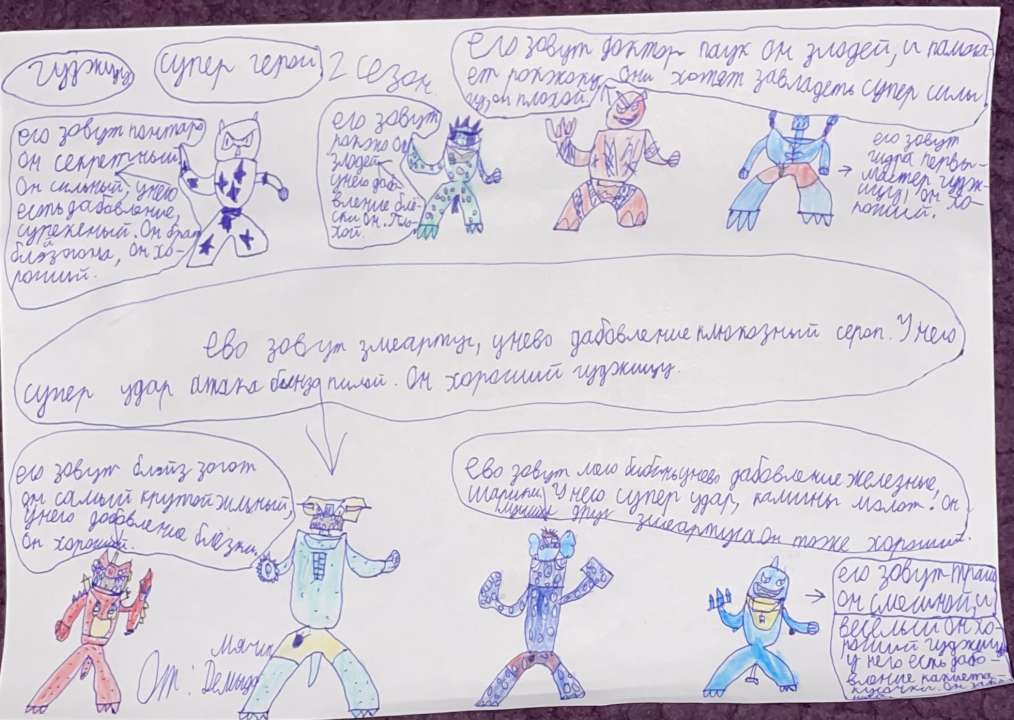 гуджицу
супер герои
2 сезон
его зовут доктор паук он злодей, и памога-
ет рокжоку. Они хотят завладеть супер силы
гу, он плохой.
его зовут пантаро
он секретный
он сильный унего
есть дабовление,
Он брат
блэйзогота, он хо-
роший.
его зовут
он
злодей
унего даб-
вление блё-
ски он. пло-
хой.
его зовут
гидра первы-
мастер гудж-
ицу, он хо-
роший.
ево зовут змеартуг, унево дабовление клюкозный сероп. У него
супер удар атака бензапилой. Он хороший гуджицу.
его зовут блэйз зогот
он самый крутой
унего дабовление блёзки
Он хороший.
ево зовут унево дабовление железные,
шарики У него супер удар, камины молот. Он
друг змеартуга Он тоже хороший.
его зовут
он смешной, и
веселый он хо-
роший гуджицу
у него есть дабо-
вление какиета
От: Мячик
Демида